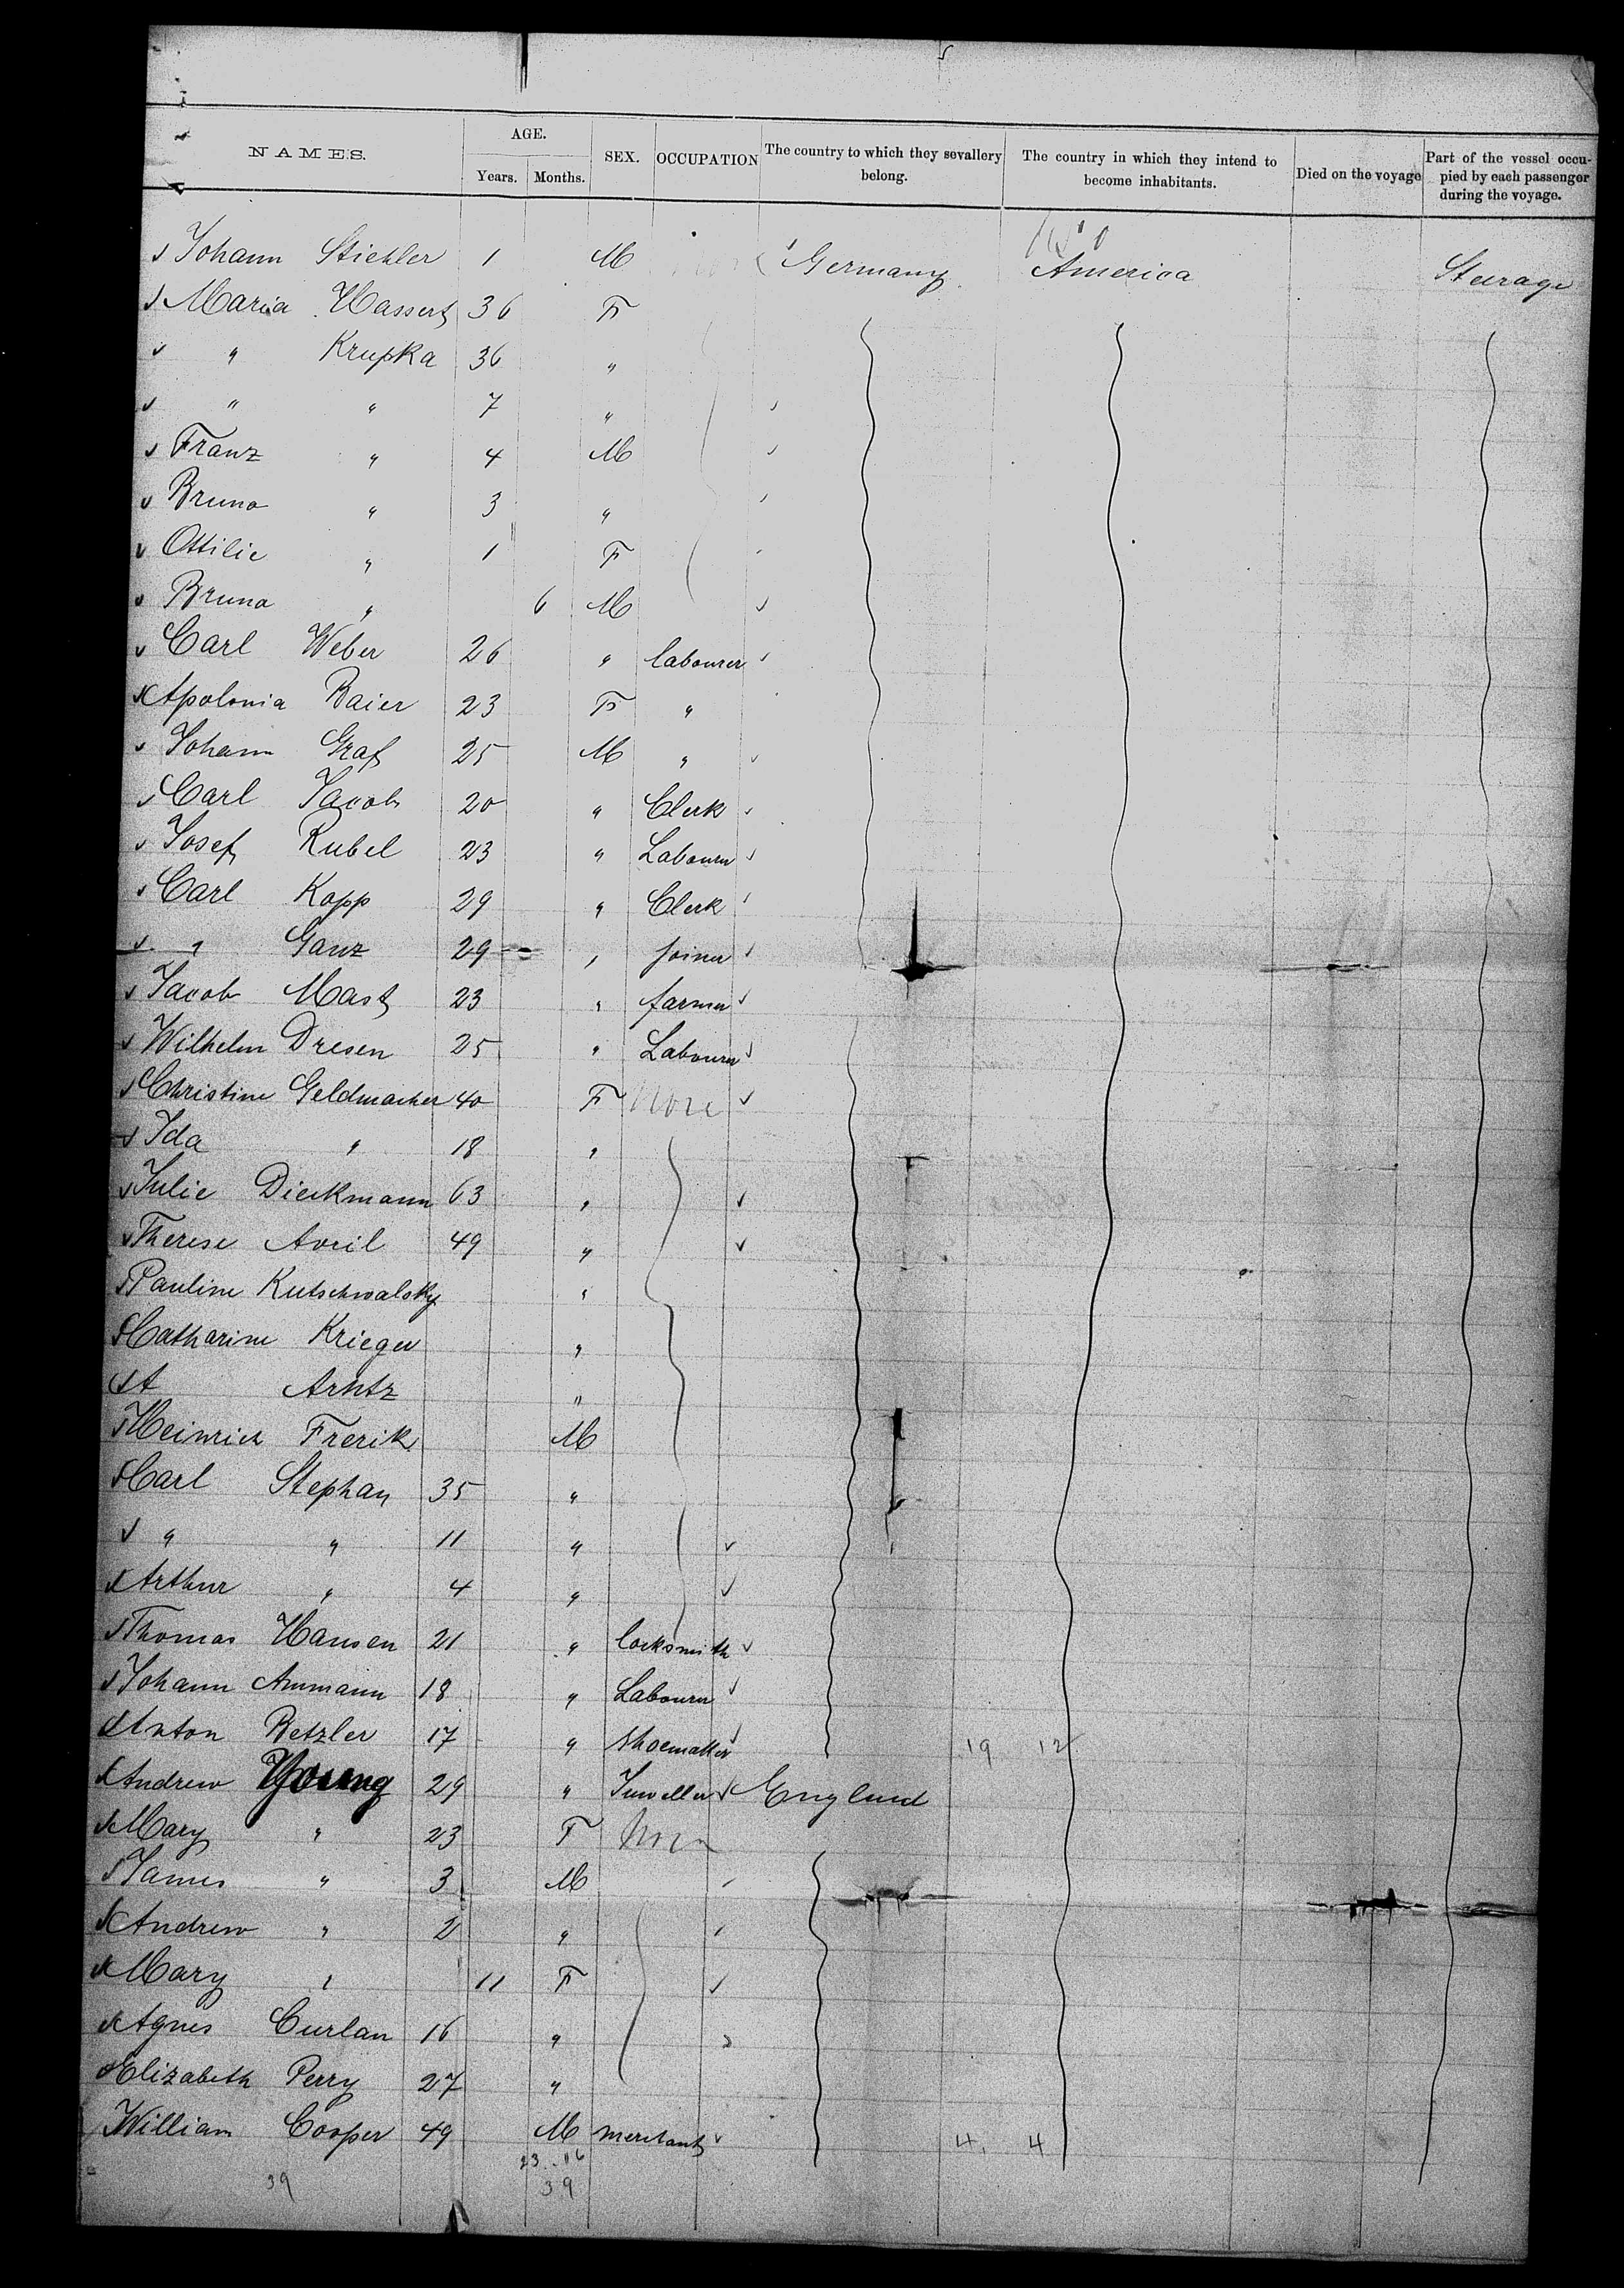 NAMES. AGE. SEX. OCCUPATION The country to which they sevallery belong. The country in which they intend to become inhabitants. Died on the voyage Part of the vessel occupied by each passenger during the voyage.
Years. Months.
Johann Stiehler 1 M Germany America Steerage
Maria Hassert 36 F
" Krupka 36 "
" " 7 "
Franz " 4 M
Bruno " 3 "
Ottilie " 1 F
Bruno " 6 M
Carl Weber 26 " labourer
Apolonia Baier 23 F "
Johann Graf 25 M "
Carl Jacob 20 " Clerk
Josef Rubel 23 " Labourer
Carl Kopp 29 " Clerk
" Ganz 29 " joiner
Jacob Mast 23 " farmer
Wilhelm Dresen 25 " Labourer
Christine Geldmacher 40 F None
Ida " 18 "
Julie Dieckmann 63 "
Therese Avril 49 "
Pauline Kutschwalsky "
Catharine Krieger "
A Arntz "
Heinrich Frerik M
Carl Stephan 35 "
" " 11 "
Arthur " 4 "
Thomas Hansen 21 " locksmith
Johann Ammann 18 " Labourer
Anton Betzler 17 " shoemaker 19 12
Andrew Young 29 " Juweller England
Mary " 23 F None
James " 3 M
Andrew " 2 "
Mary " 11 F
Agnes Curlan 16 "
Elizabeth Perry 27 "
William Cooper 49 M merchant 4 4
23 16
39 39